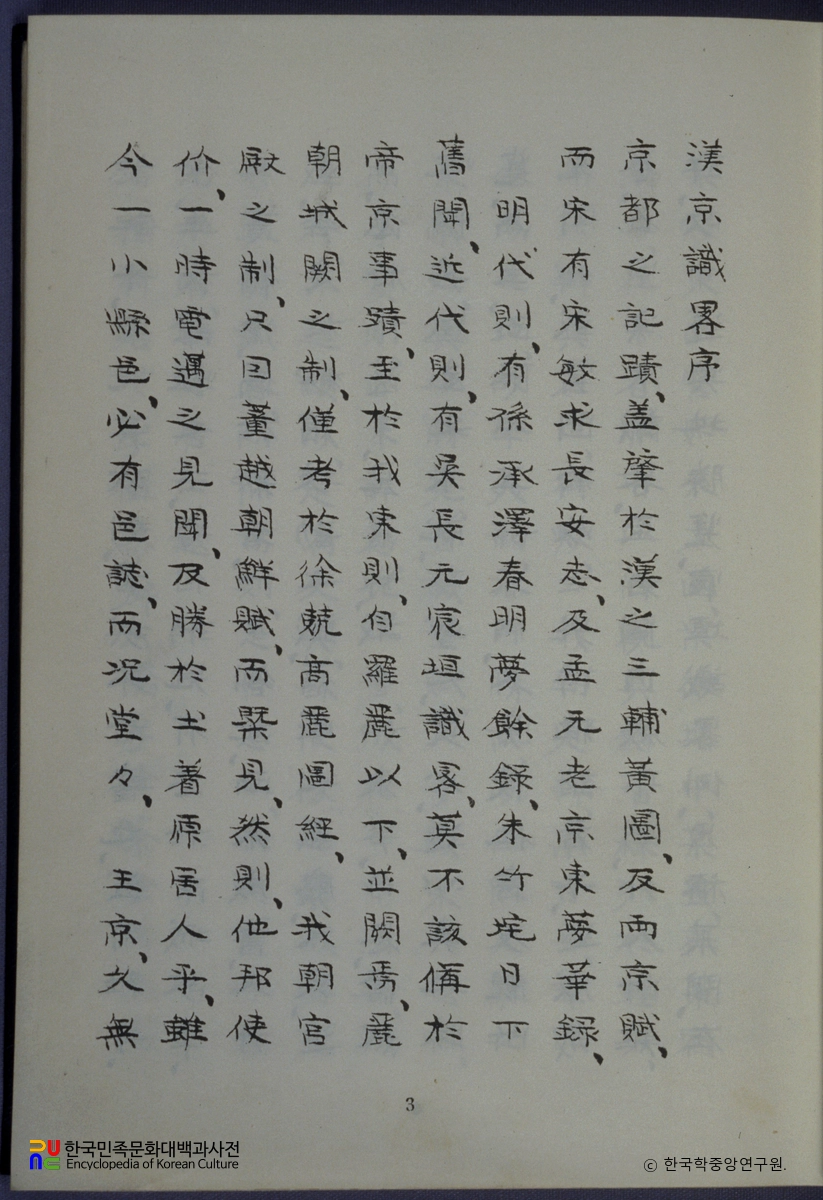 漢京識畧序
京都之記蹟、盖肇於漢之三輔黃圖、及兩京賦、
而宋有宋敏求長安志、及孟元老京東夢華錄、
明代則、有孫承澤春明夢餘錄、朱竹垞日下
舊聞、近代則、有吳長元宸垣識畧、莫不該備於
帝京事蹟、至於我東則、自羅麗以下、並闕焉、麗
朝城闕之制、僅考於徐兢高麗圖經、我朝宮
殿之制、只因董越朝鮮賦、而槩見、然則、他邦使
价、一時電過之見聞、及勝於土着原居人乎、雖
今一小縣邑、必有邑誌、而况堂々、王京、久無
3
한국민족문화대백과사전
Encyclopedia of Korean Culture
ⓒ 한국학중앙연구원.